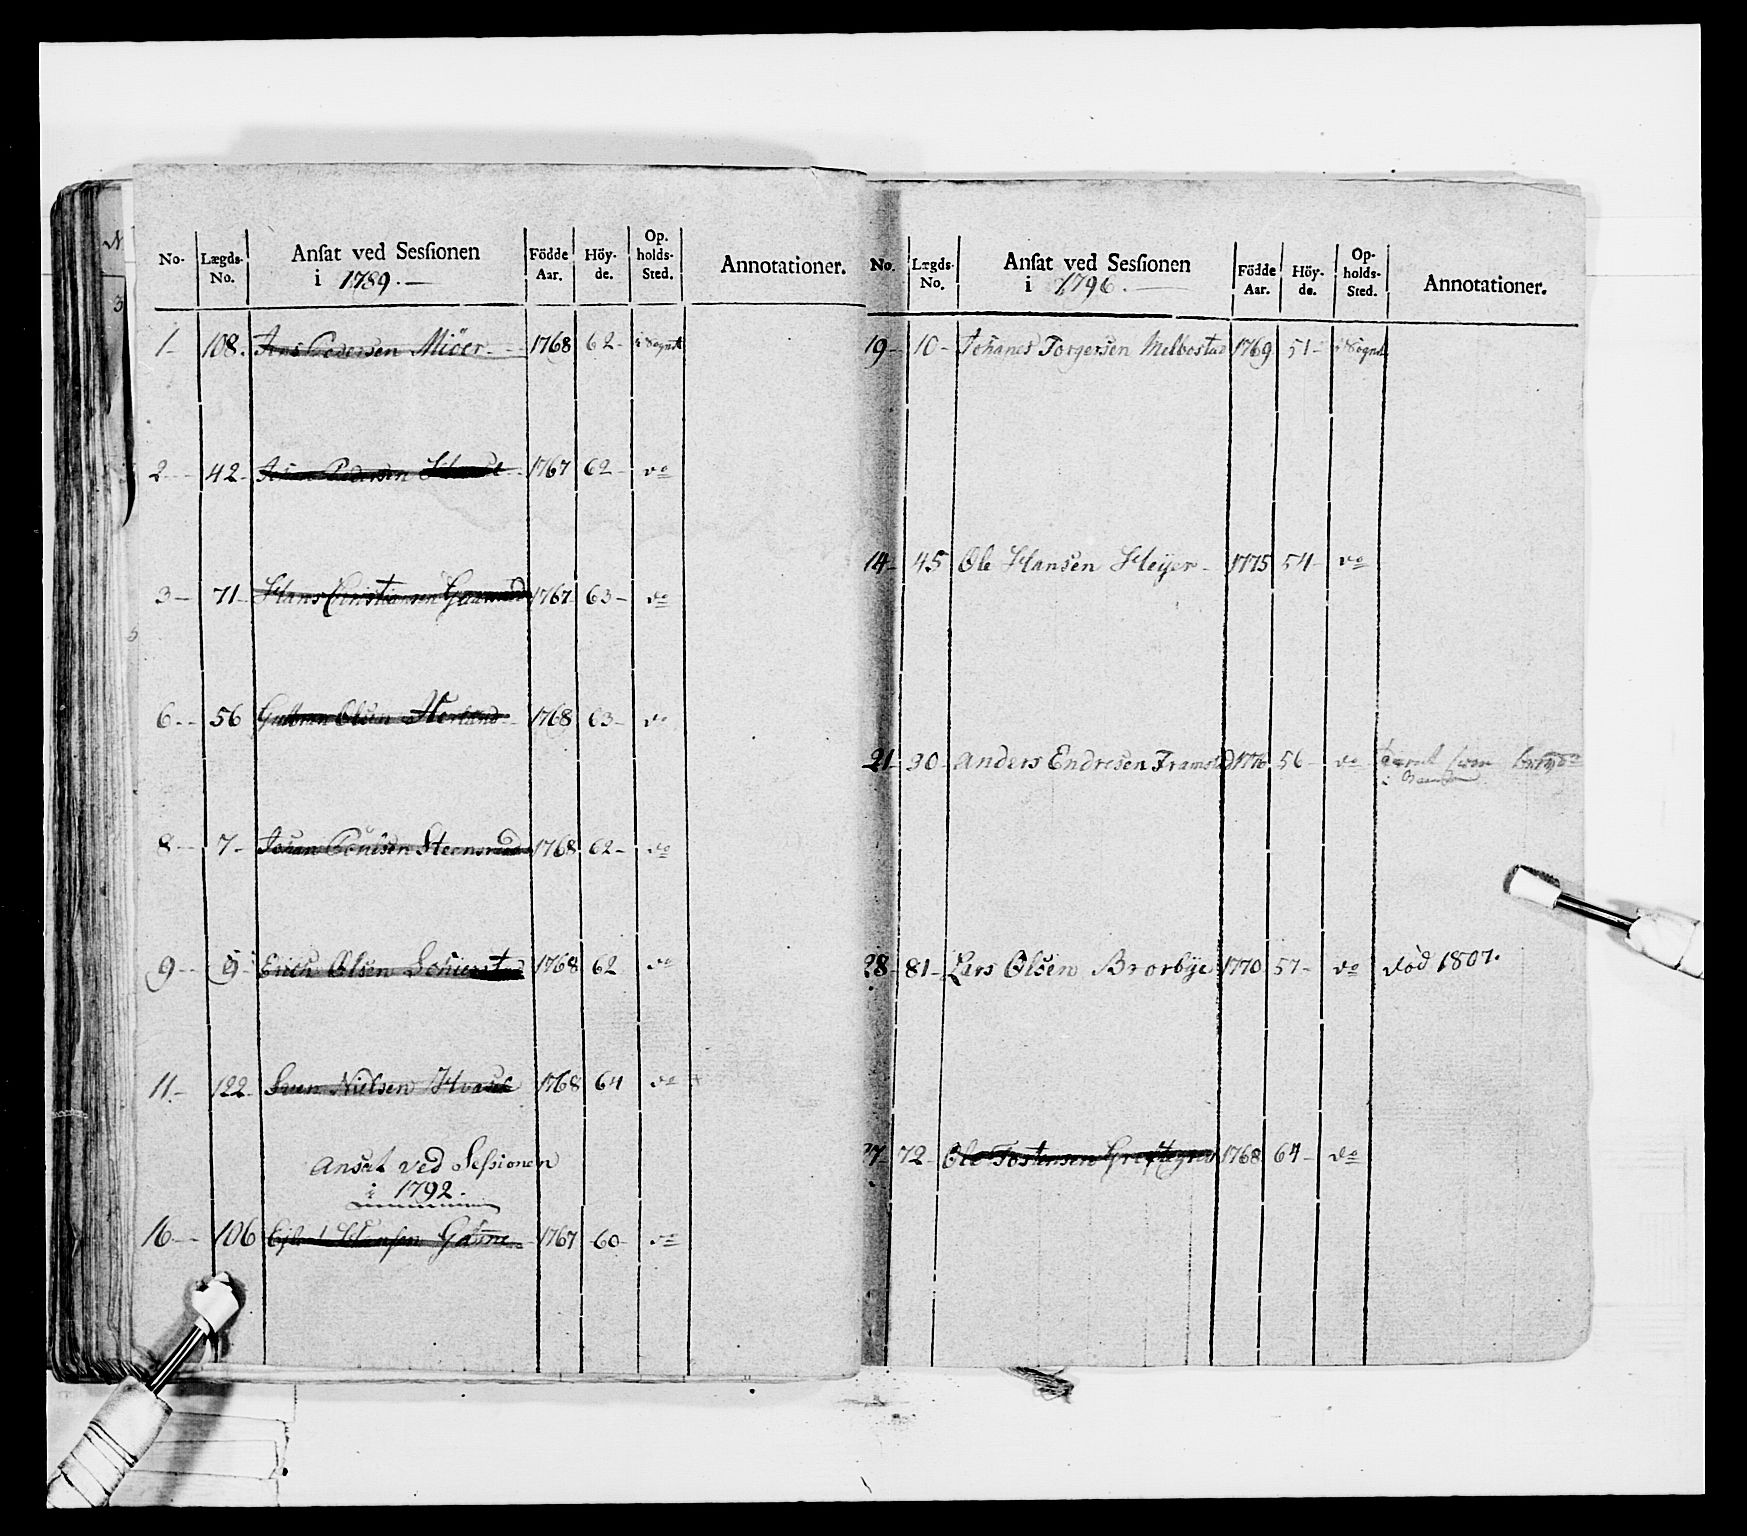 No. Lægds-No. Ansat ved Sessionen i 1789. Födde Aar. Höy-de. Op-holds-Sted. Annotationer.
1 108. Jens Pedersen Miöer 1768 62 i Sognet
2 42 Pedersen 1767 62 do
3 71 Hans Christiansen 1767 63 do
6 56 Gulbran Olsen 1768 63 do
8 7 Johan Poulsen Steensrud 1768 62 do
9 9 Erich Olsen 1768 62 do
11 122 Sven Nielsen 1768 64 do
Ansat ved Sessionen
i 1792.
16 106 Hansen 1767 60 do
No. Lægds-No. Ansat ved Sessionen i 1796. Födde Aar. Höy-de. Op-holds-Sted. Annotationer.
19 10 Johanes Torgersen Melbostad 1769 51 i Sognet
14 45 Ole Hansen Heijer 1775 54 do
21 30 Anders Endresen Framstad 1776 56 do
28 81 Lars Olsen Brorbye 1770 57 do död 1807.
72 Ole Tostensen 1768 64 do